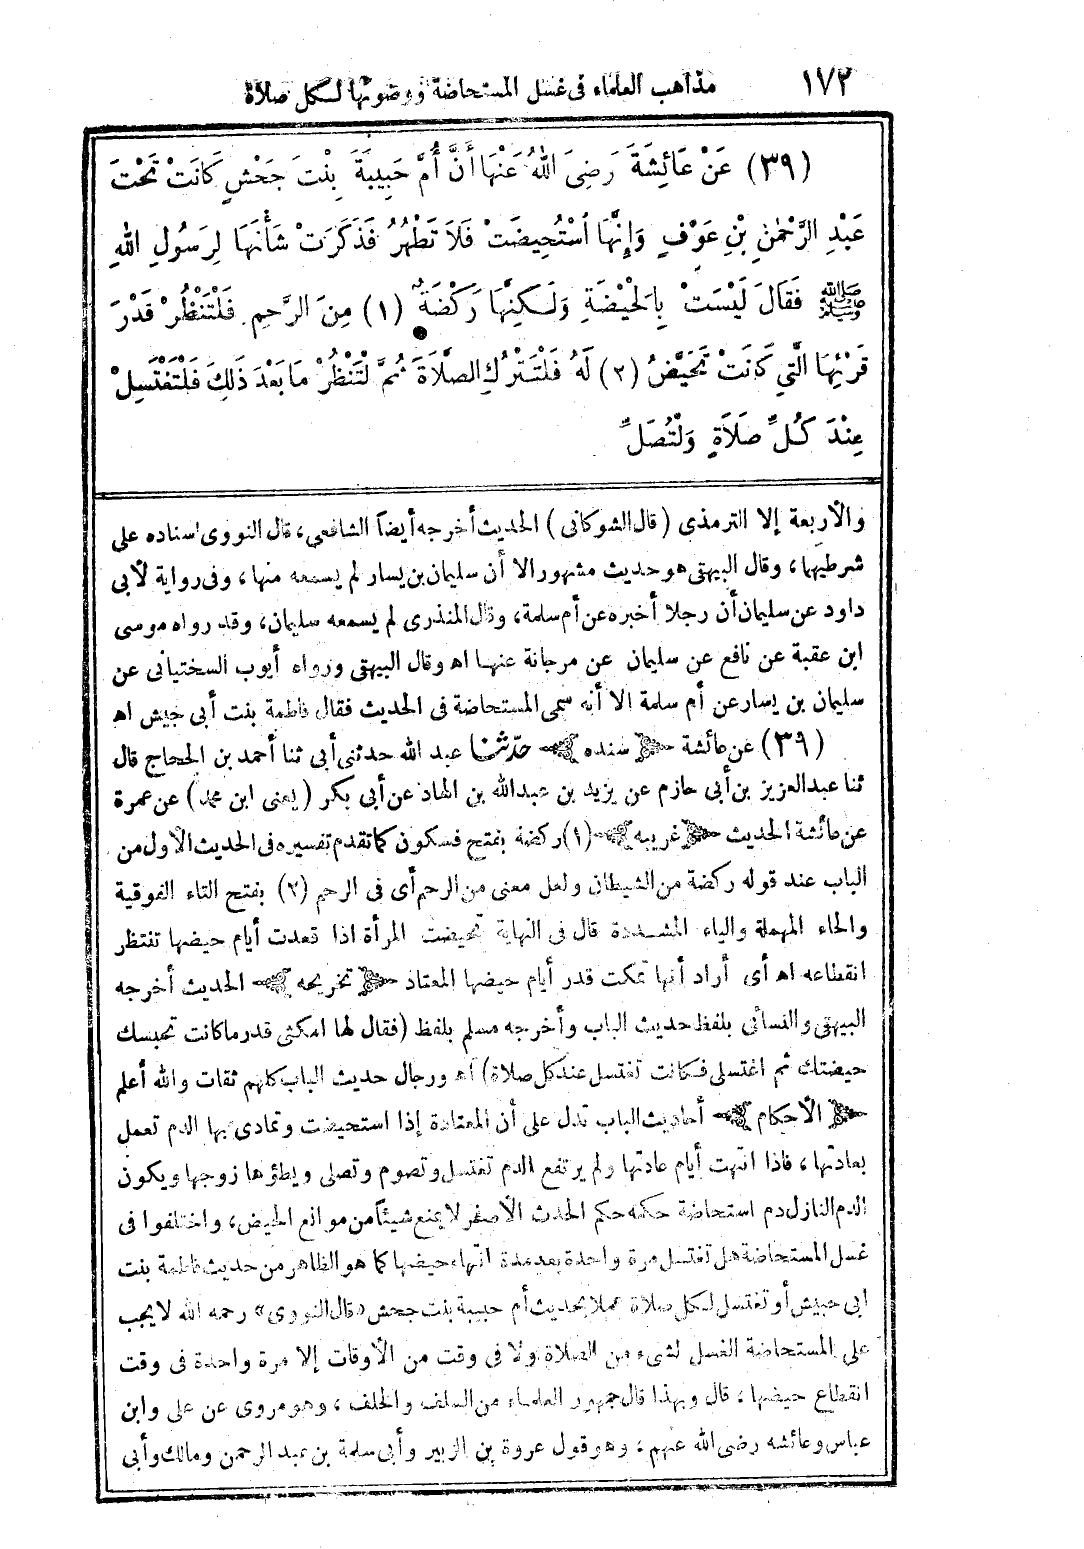 ١٧٢ مذاهب العلماء فى غسل المستحاضة ووضوئها لكل صلاة
(٣٩) عَنْ عَائِشَةَ رَضِىَ اللهُ عَنْهَا أَنَّ أُمَّ حَبِيبَةَ بِنْتَ جَحْشٍ كَانَتْ تَحْتَ
عَبْدِ الرَّحْمٰنِ بْنِ عَوْفٍ وَإِنَّهَا اُسْتُحِيضَتْ فَلَا تَطْهُرُ فَذَكَرَتْ شَأْنَهَا لِرَسُولِ اللهِ
ﷺ فَقَالَ لَيْسَتْ بِالحَيْضَةِ وَلَكِنَّهَا رَكْضَةٌ (١) مِنَ الرَّحِمِ فَلْتَنْظُرْ قَدْرَ
قَرْئِهَا الَّتِي كَانَتْ تَحَيَّضُ (٢) لَهُ فَلْتَتْرُكِ الصَّلَاةَ ثُمَّ لْتَنْظُرْ مَا بَعْدَ ذَلِكَ فَلْتَغْتَسِلْ
عِنْدَ كُلِّ صَلَاةٍ وَلْتُصَلِّ
والأربعة إلا الترمذى (قال الشوكانى) الحديث أخرجه أيضاً الشافعى، قال النووى اسناده على
شرطيهما، وقال البيهقى هو حديث مشهور الا أن سليمان بن يسار لم يسمعه منها، وفى رواية لأبى
داود عن سليمان أن رجلا أخبره عن أم سلمة، وقال المنذرى لم يسمعه سليمان، وقد رواه موسى
ابن عقبة عن نافع عن سليمان عن مرجانة عنها اه وقال البيهقى ورواه أيوب السختيانى عن
سليمان بن يسار عن أم سلمة الا أنه سمى المستحاضة فى الحديث فقال فاطمة بنت أبى حبيش اه
(٣٩) عن عائشة سنده حدّثنا عبد الله حدثنى أبى ثنا أحمد بن الحجاج قال
ثنا عبدالعزيز بن أبى حازم عن يزيد بن عبدالله بن الهاد عن أبى بكر (يعنى ابن محمد) عن عمرة
عن عائشة الحديث غريبه (١) ركضة بفتح فسكون كما تقدم تفسيره فى الحديث الأول من
الباب عند قوله ركضة من الشيطان ولعل معنى من الرحم أى فى الرحم (٢) بفتح التاء الفوقية
والحاء المهملة والياء المشددة قال فى النهاية تحيضت المرأة اذا قعدت أيام حيضها تنتظر
انقطاعه اه أى أراد أنها تمكث قدر أيام حيضها المعتاد تخريجه الحديث أخرجه
البيهقى والنسائى بلفظ حديث الباب وأخرجه مسلم بلفظ (فقال لها امكثى قدر ما كانت تحبسك
حيضتك ثم اغتسلى فكانت تغتسل عند كل صلاة) اه ورجال حديث الباب كلهم ثقات والله أعلم
الأحكام أحاديث الباب تدل على أن المعتادة إذا استحيضت وتمادى بها الدم تعمل
بعادتها، فاذا انتهت أيام عادتها ولم يرتفع الدم تغتسل وتصوم وتصلى ويطؤها زوجها ويكون
الدم النازل دم استحاضة حكمه حكم الحدث الأصغر لا يمنع شيئاً من موانع الحيض، واختلفوا فى
غسل المستحاضة هل تغتسل مرة واحدة بعد مدة انتهاء حيضها كما هو الظاهر من حديث فاطمة بنت
ابى حبيش أو تغتسل لكل صلاة عملا بحديث أم حبيبة بنت جحش «قال النووى» رحمه الله لا يجب
على المستحاضة الغسل لشىء من الصلاة ولا فى وقت من الأوقات إلا مرة واحدة فى وقت
انقطاع حيضها، قال وبهذا قال جمهور العلماء من السلف والخلف، وهو مروى عن على وابن
عباس وعائشه رضى الله عنهم، وهو قول عروة بن الزبير وأبى سلمة بن عبد الرحمن ومالك وأبى